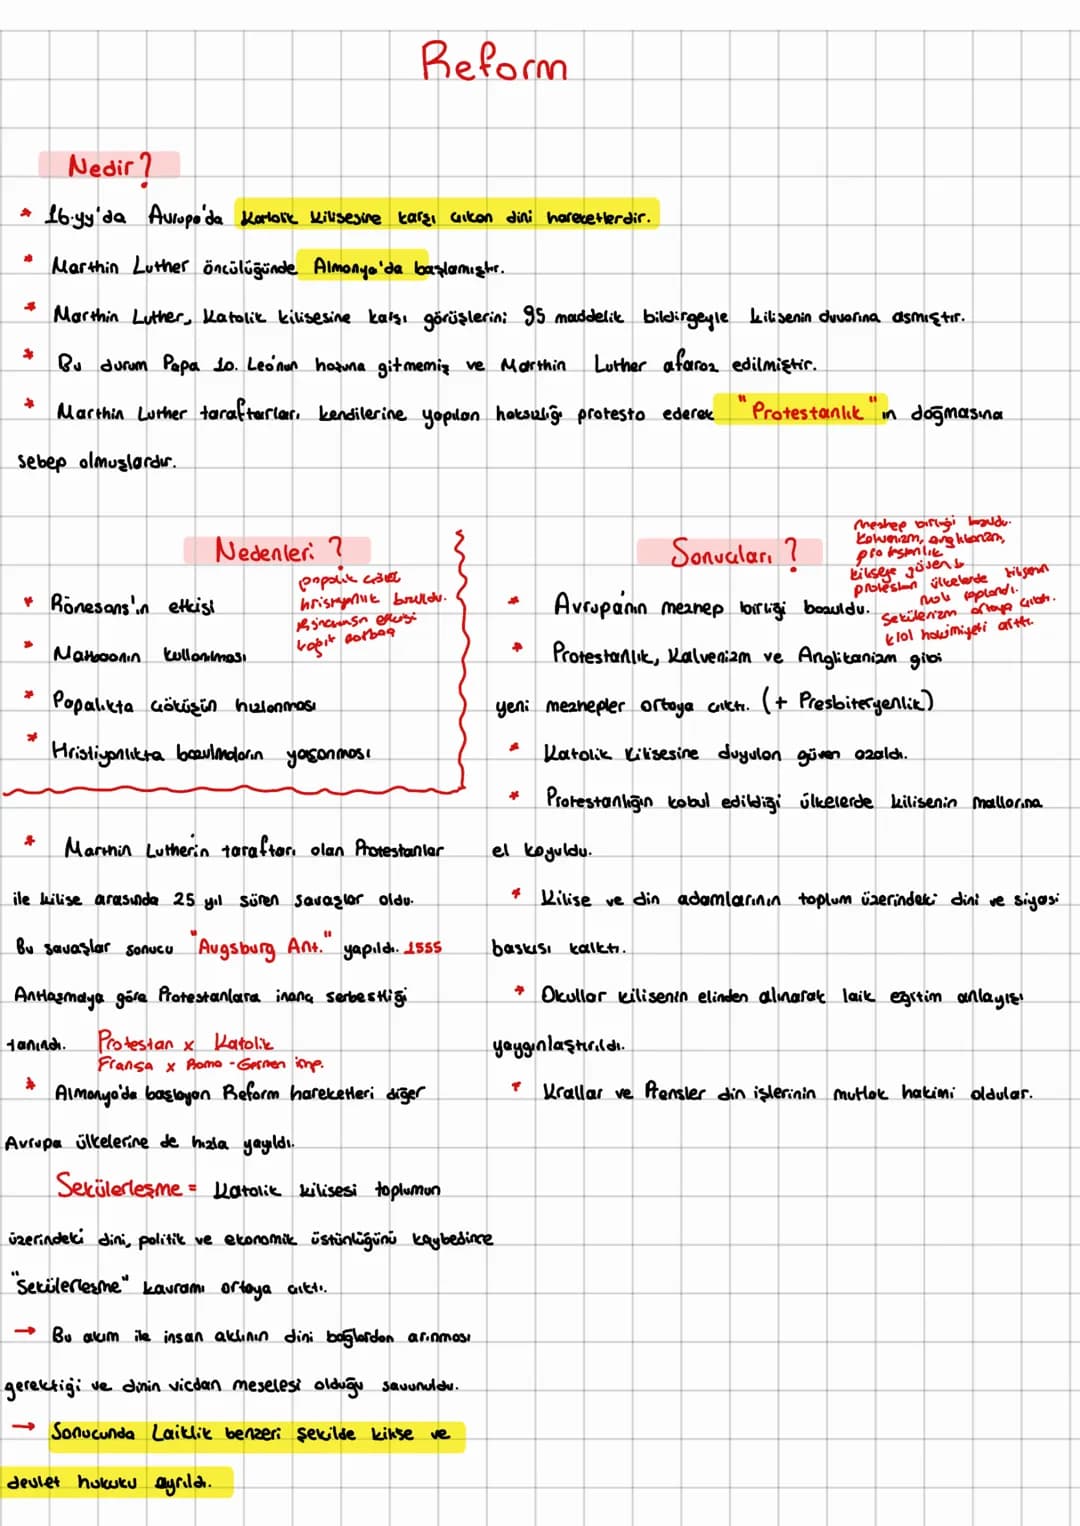 Reform
Nedir?
* 16.yy'da Avrupa'da Katolik Kilisesine karşı çıkan dini hareketlerdir.
* Marthin Luther öncülüğünde Almanya'da başlamıştır.
* Marthin Luther, Katolik kilisesine karşı görüşlerini 95 maddelik bildirgeyle kilisenin duvarına asmıştır.
* Bu durum Papa 10. Leo'nun hoşuna gitmemiş ve Marthin Luther afaroz edilmiştir.
* Marthin Luther taraftarları kendilerine yapılan haksızlığı protesto ederek "Protestanlık"ın doğmasına
sebep olmuşlardır.
Nedenleri ?
papalık çöktü
hristiyanlık bozuldu.
Rönesansın etkisi
kağıt matbaa
* Rönesans'ın etkisi
* Matbaanın kullanılması
* Papalıkta çöküşün hızlanması
* Hristiyanlıkta bozulmaların yaşanması
* Marthin Luther'in taraftarı olan Protestanlar
ile kilise arasında 25 yıl süren savaşlar oldu.
Bu savaşlar sonucu "Augsburg Ant." yapıldı. 1555
Antlaşmaya göre Protestanlara inanç serbestliği
tanındı. Protestan x Katolik
Fransa x Roma-Germen imp.
* Almanya'da başlayan Reform hareketleri diğer
Avrupa ülkelerine de hızla yayıldı.
Sekülerleşme = Katolik kilisesi toplumun
üzerindeki dini, politik ve ekonomik üstünlüğünü kaybedince
"Sekülerleşme" kavramı ortaya çıktı.
→ Bu akım ile insan aklının dini bağlardan arınması
gerektiği ve dinin vicdan meselesi olduğu savunuldu.
→ Sonucunda Laiklik benzeri şekilde kilise ve
devlet hukuku ayrıldı.
Sonuçları ?
Mezhep birliği bozuldu.
Kalvenizm, anglikanizm,
protestanlık
kiliseye güven ↓
protestan ülkelerde kilisenin
malı toplandı.
Sekülerizm ortaya çıktı.
kral hakimiyeti arttı.
* Avrupa'nın mezhep birliği bozuldu.
* Protestanlık, Kalvenizm ve Anglikanizm gibi
yeni mezhepler ortaya çıktı. (+ Presbiteryenlik)
* Katolik Kilisesine duyulan güven azaldı.
* Protestanlığın kabul edildiği ülkelerde kilisenin mallarına
el koyuldu.
* Kilise ve din adamlarının toplum üzerindeki dini ve siyasi
baskısı kalktı.
* Okullar kilisenin elinden alınarak laik eğitim anlayışı
yaygınlaştırıldı.
* Krallar ve Prensler din işlerinin mutlak hakimi oldular.